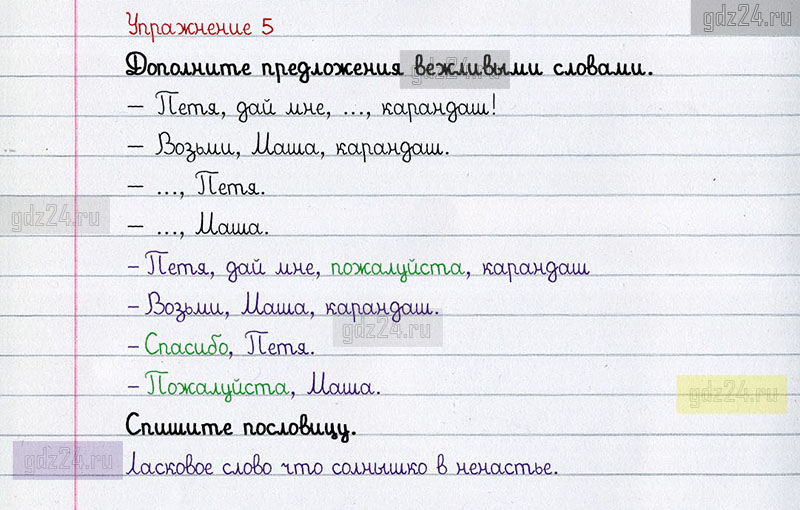 gdz24.ru
Упражнение 5
Дополните предложения вежливыми словами.
gdz24.ru
– Петя, дай мне, ..., карандаш!
– Возьми, Маша, карандаш.
– ..., Петя.
gdz24.ru
– ..., Маша.
- Петя, дай мне, пожалуйста, карандаш
- Возьми, Маша, карандаш.
gdz24.ru
- Спасибо, Петя.
- Пожалуйста, Маша.
gdz24.ru
Спишите пословицу.
gdz24.ru
Ласковое слово что солнышко в ненастье.